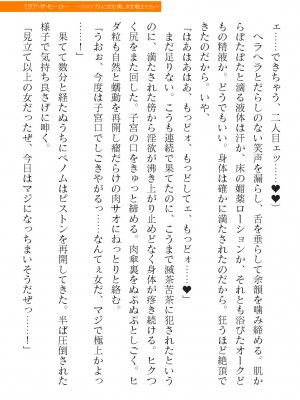 ェ……できちゃう、二人目ェッ……♥♥」
ヘラヘラとだらしのない笑声を漏らし、舌を垂らして余韻を噛み締める。肌か
らぽたぽたと滴る液体は汗か、床の媚薬ローションか、それとも浴びたオークど
もの精液か。どうでもいい。身体は確かに満たされたのだから。狂うほど絶頂で
きたのだから。いや、
「はあはあはあ、もっどぉ、もっどしてェ、もっどぉ……♥」
まだ足りない。こうも連続で果てたのに、こうまで滅茶苦茶に犯されたという
のに、満たされた傍から淫欲が沸き上がり止めどなく身体が疼き続ける。ヒクつ
く尻をまた回した。子宮の口をきゅっと締める。肉傘裏をぬぷぬぷとしごく。ヒ
ダ粒も自然と蠕動を再開し瘤だらけの肉サオにねっとりと絡む。
「うおぉ、今度は子宮口でしごきやがるっ……なんてェ女だ、マジで極上かよっ
……」
果てて数分と経たぬうちにベノムはピストンを再開してきた。半ば圧倒された
様子で気持ち良さげに呻く。
「見立て以上の女だったぜ、今日はマジになっちまいそうだぜっ……！」